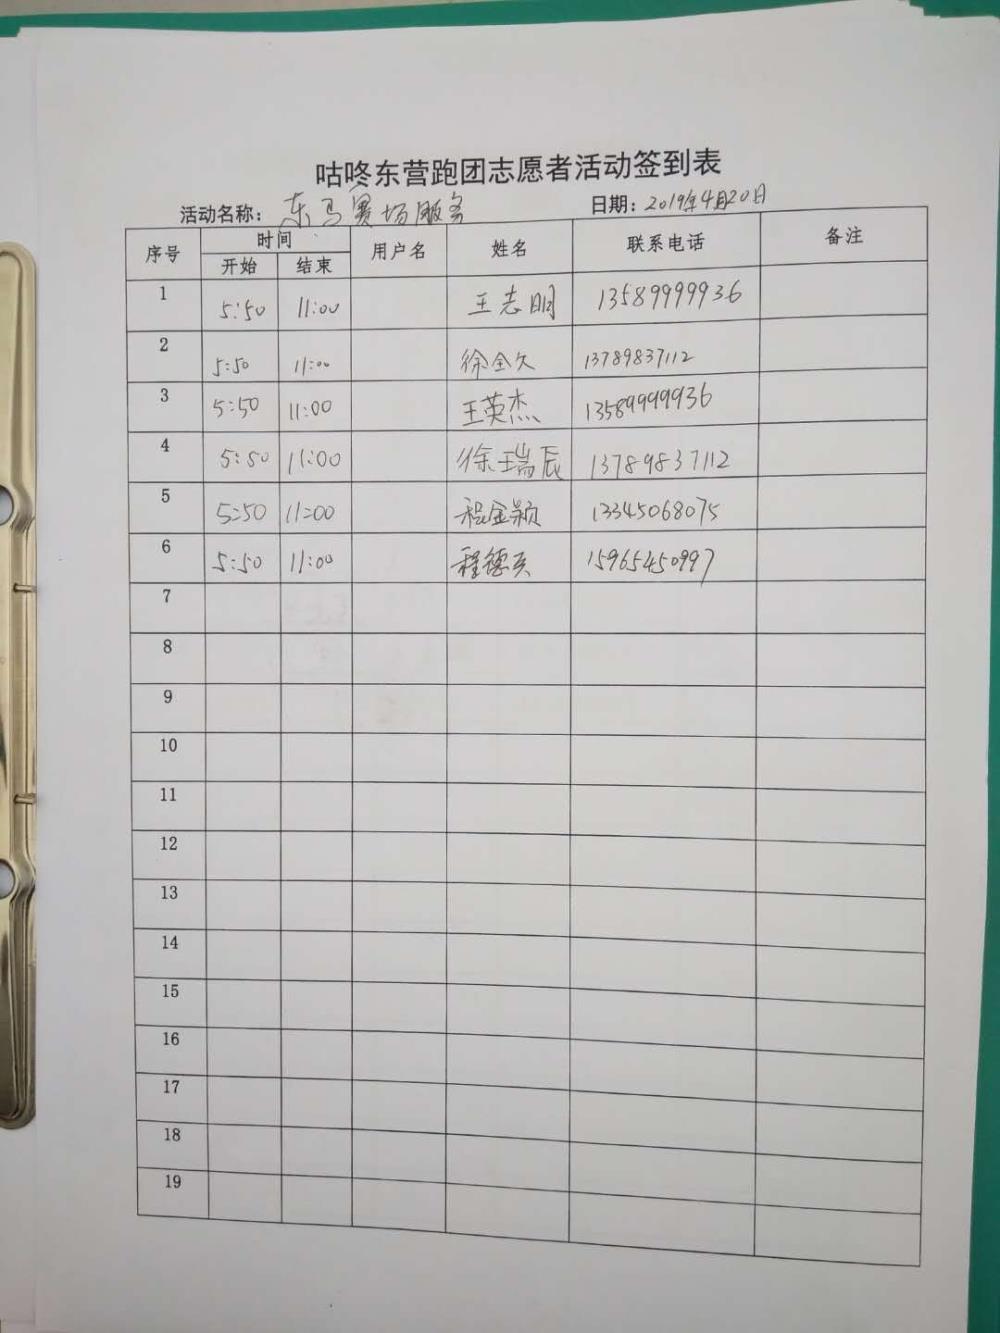 咕咚东营跑团志愿者活动签到表
活动名称：东马赛场服务 日期：2019年4月20日
序号 时间 用户名 姓名 联系电话 备注
开始 结束
1 5:50 11:00 王志明 13589999936
2 5:50 11:00 徐全久 13789837112
3 5:50 11:00 王英杰 13589999936
4 5:50 11:00 徐瑞辰 13789837112
5 5:50 11:00 程金颖 13345068075
6 5:50 11:00 程德 15965450997
7
8
9
10
11
12
13
14
15
16
17
18
19